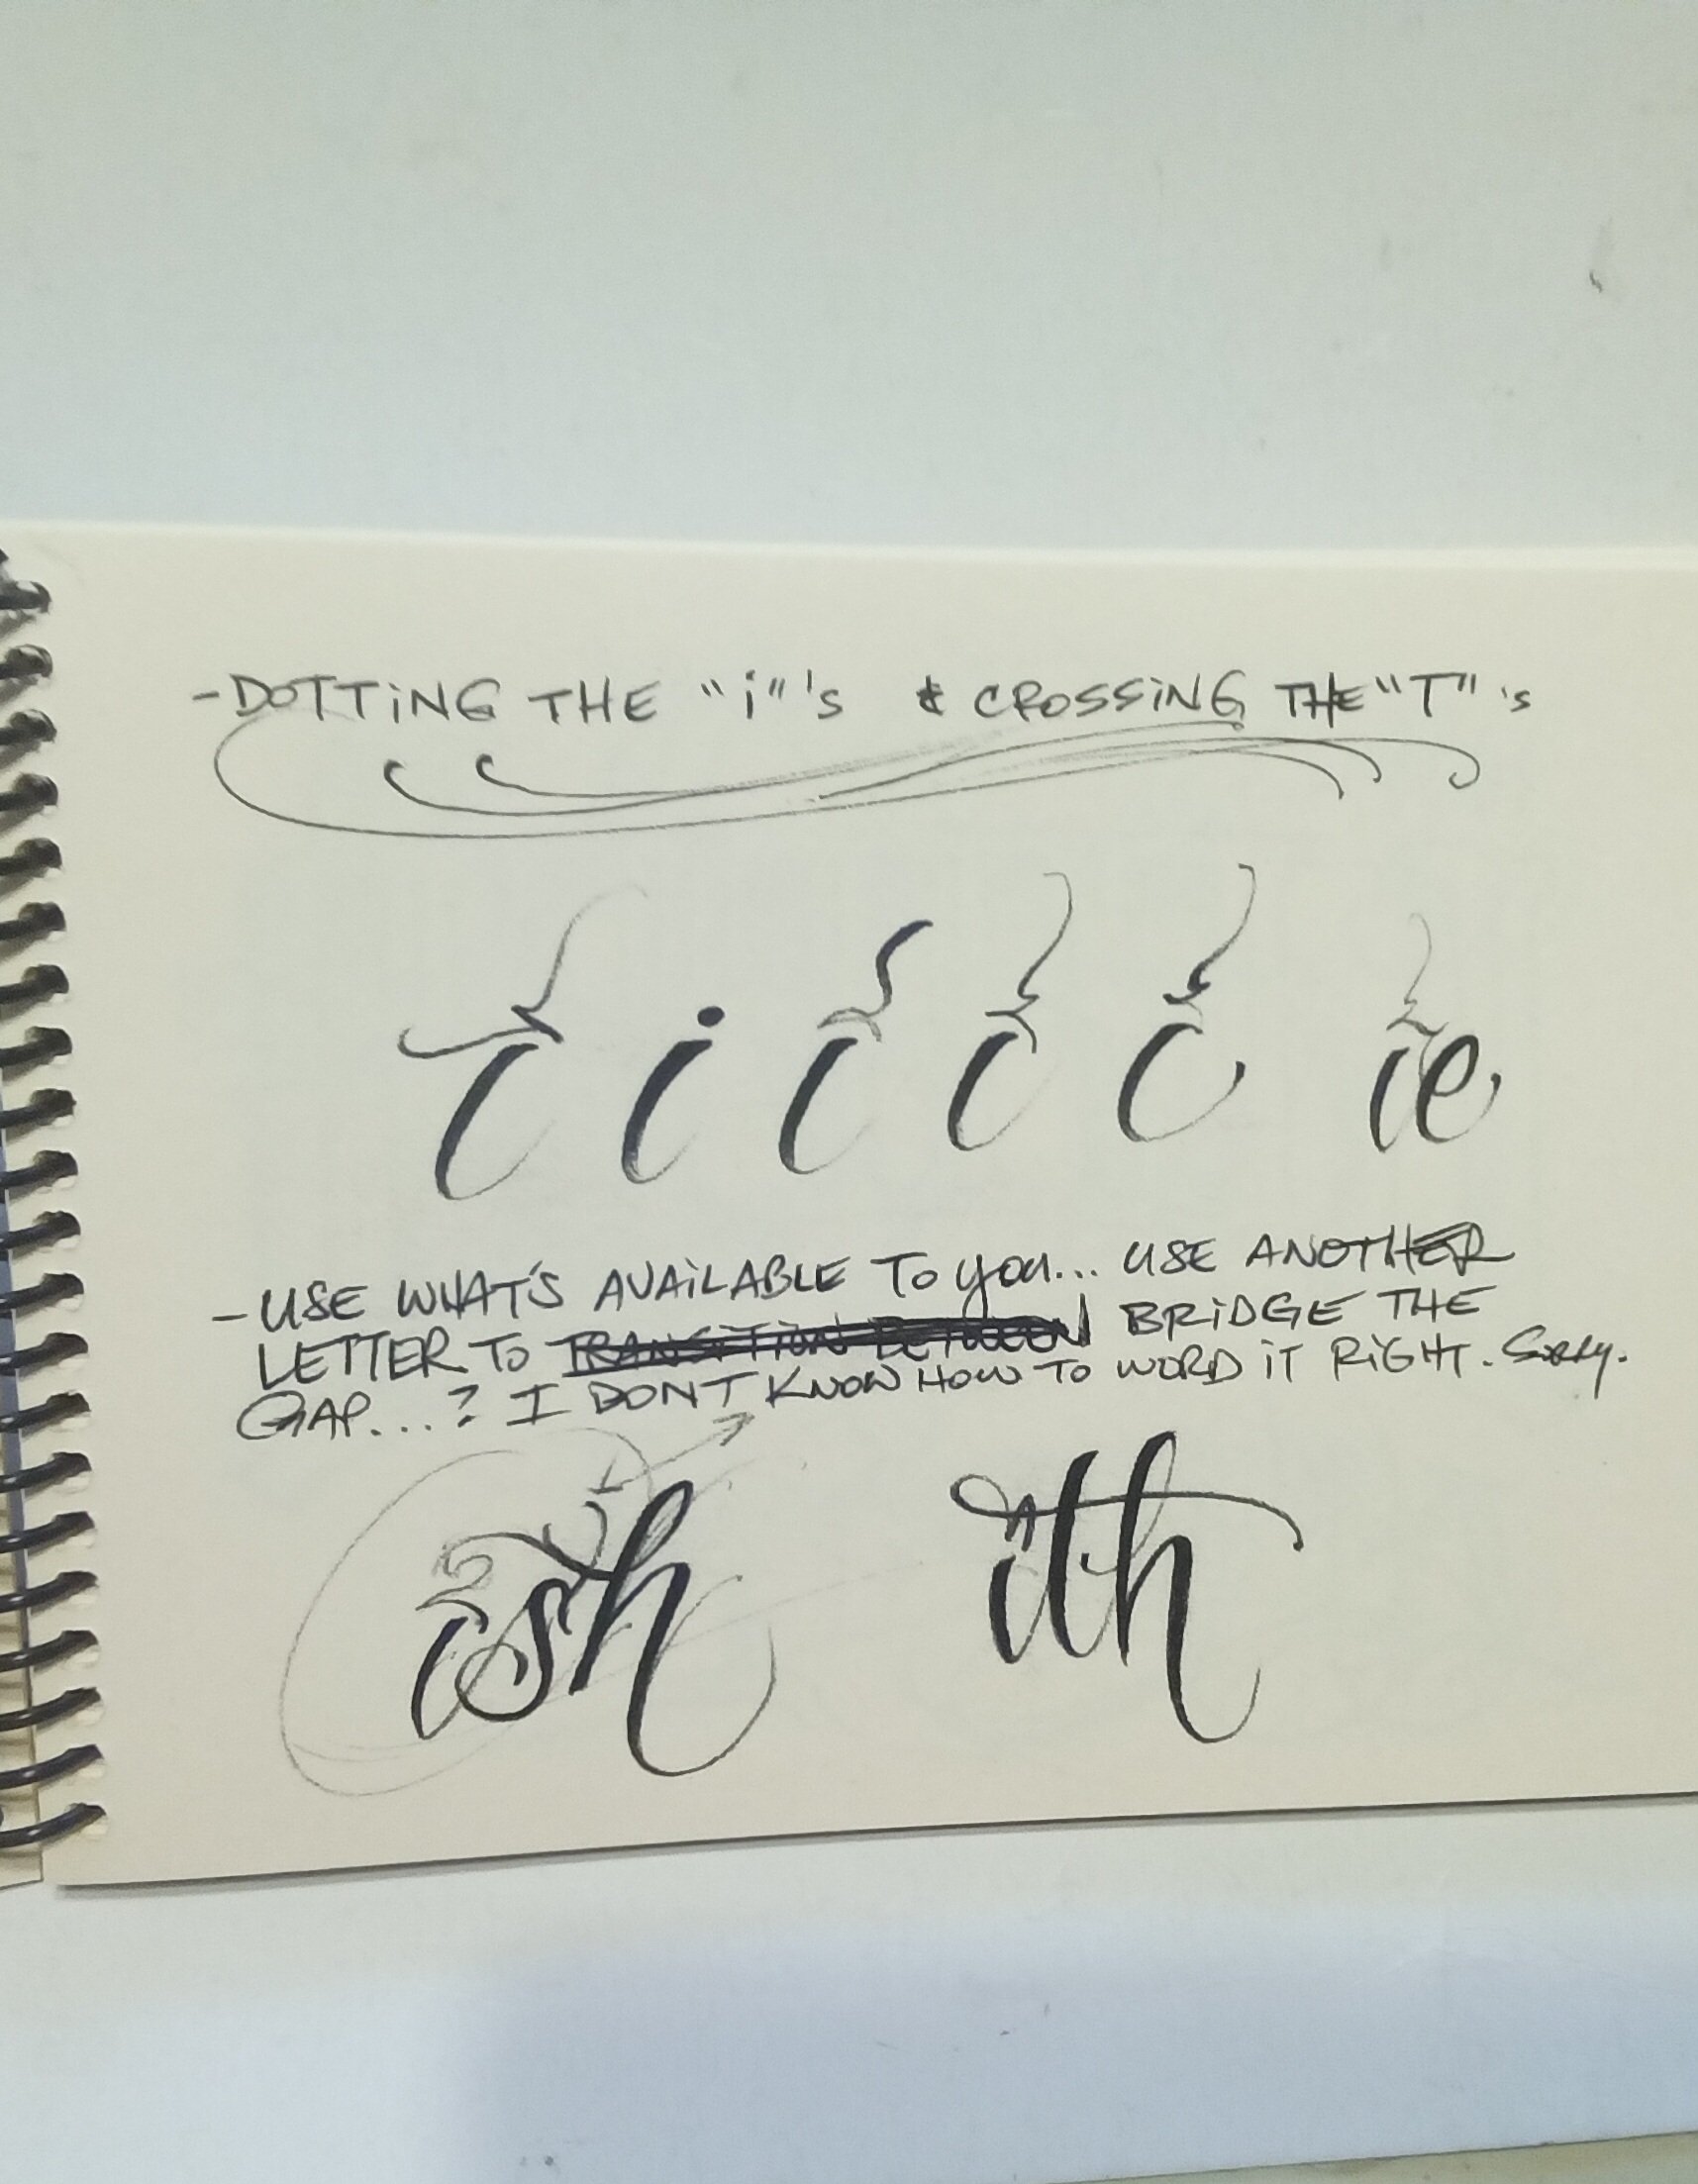 -DOTTiNG THE "i"'s & CROSSiNG THE "T"'s
i i i i i ie
-USE WHAT'S AVAiLABLE To you... USE ANOTHER
LETTER To TRANSiTiON BETWEEN BRiDGE THE
GAP...? I DONT KNOW HOW TO WORD iT RiGHT. Sorry.
ish ith